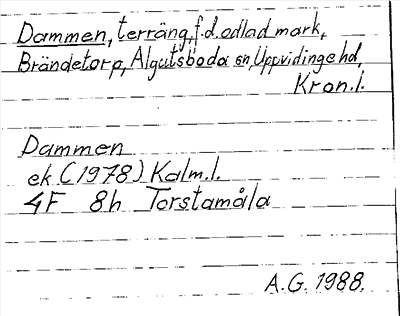 Dammen, terräng, f.d. odlad mark,
Brändetorp, Algutsboda sn, Uppvidinge hd,
Kron.l.
Dammen
ek. (1978) Kalm.l.
4F 8h Torstamåla
A.G. 1988.